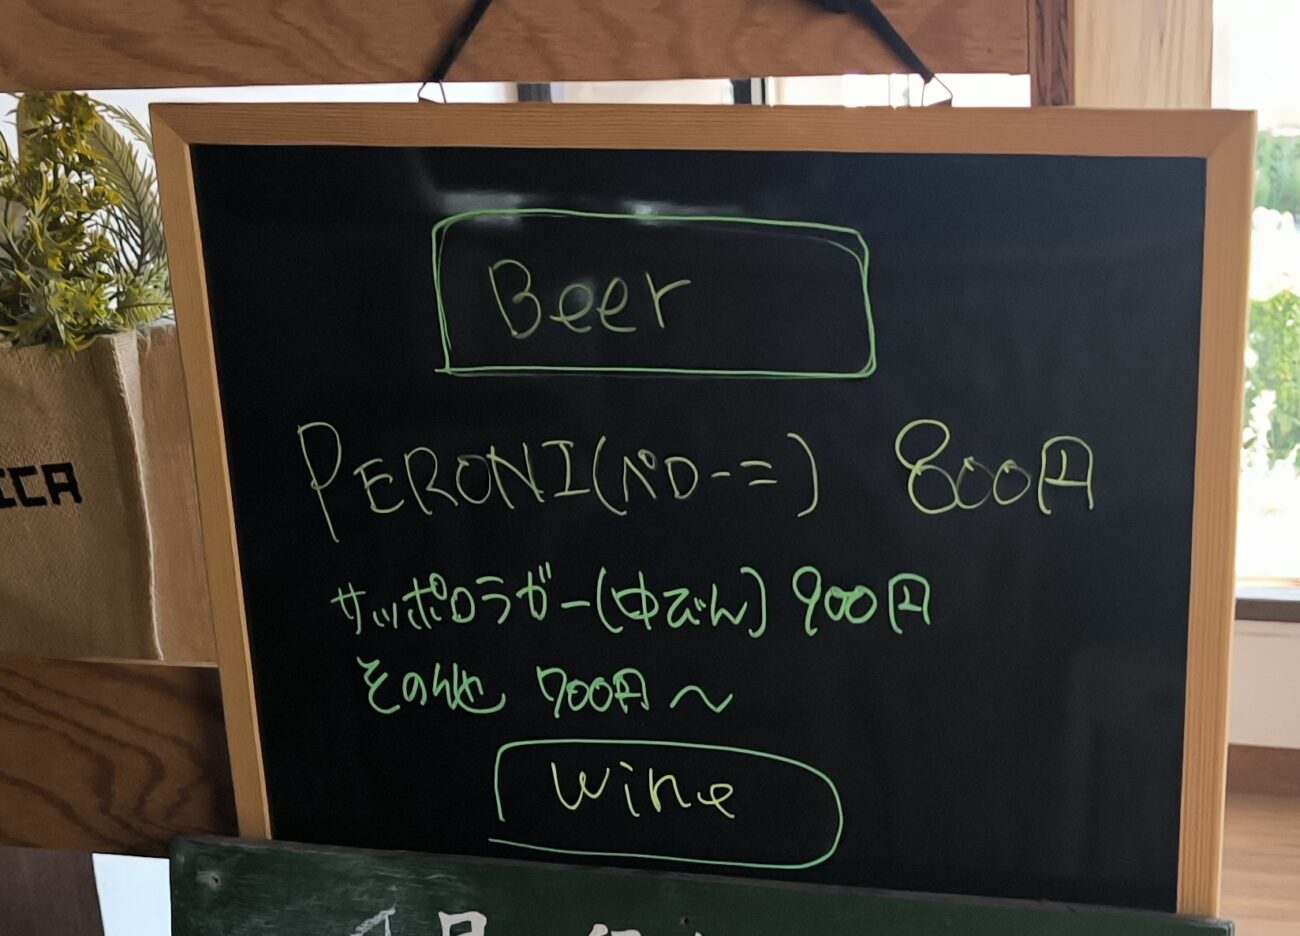 Beer
PERONI(ペローニ) 800円
サッポロラガー(中びん) 900円
その他 700円〜
Wine